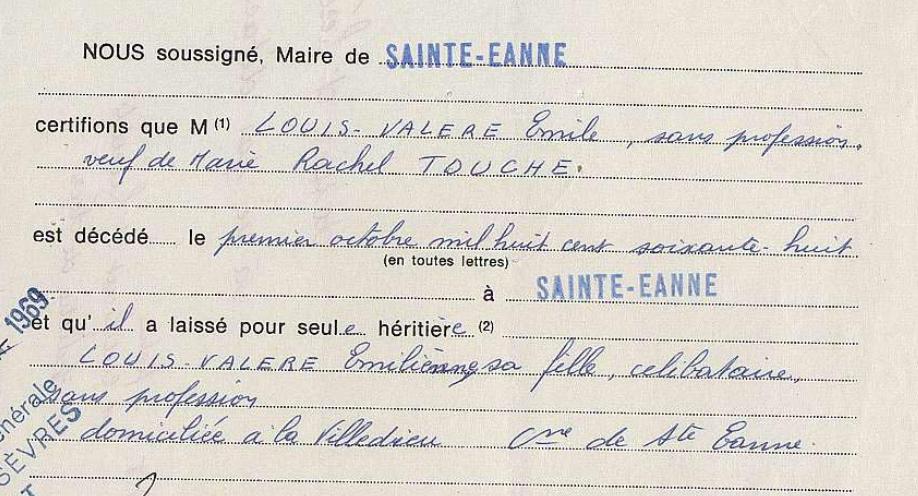 NOUS soussigné, Maire de SAINTE-EANNE
certifions que M (1) LOUIS-VALERE Emile, sans profession,
veuf de Marie Rachel TOUCHE.
est décédé le premier octobre mil huit cent soixante-huit
(en toutes lettres)
à SAINTE-EANNE
1969
et qu'il a laissé pour seule héritière (2)
LOUIS-VALERE Emilienne, sa fille, celibataire,
sans profession
domiciliée à la Villedieu Cne de Ste Eanne.
SÈVRES